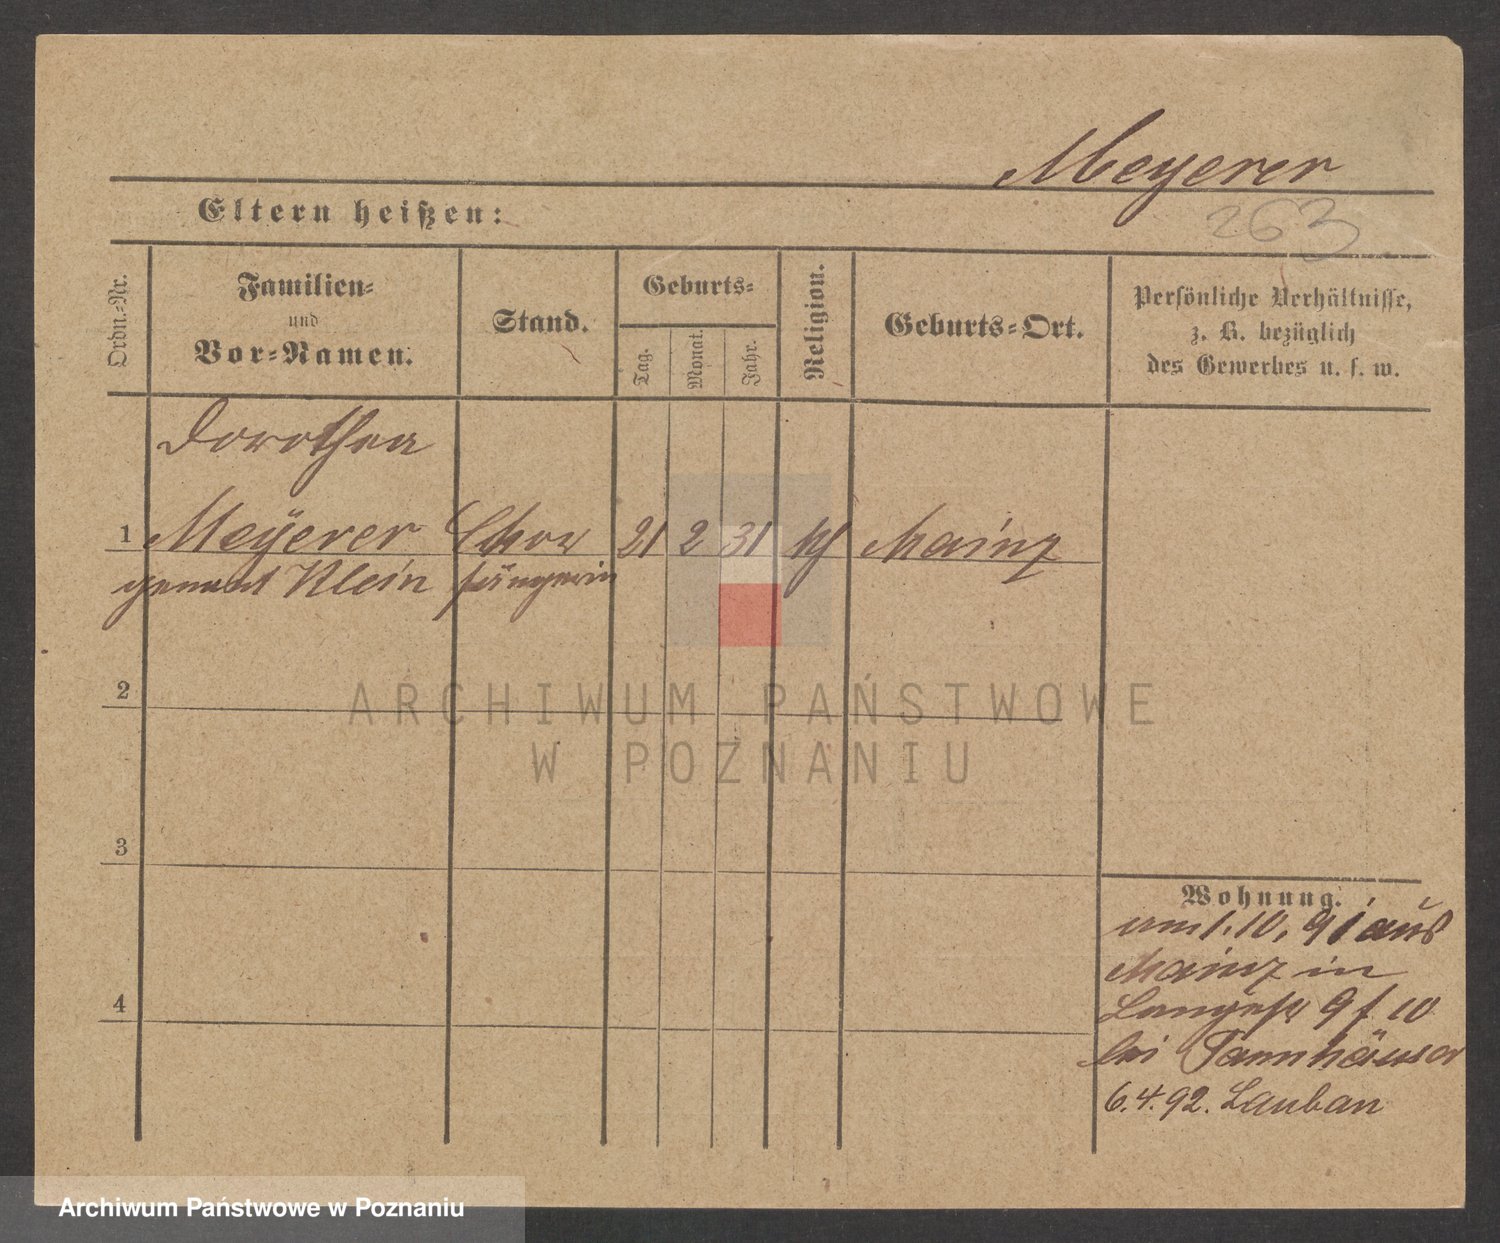 Meyerer
Eltern heißen:
263
Ordn.-Nr.
Familien-
und
Vor-Namen.
Stand.
Geburts-
Tag.
Monat.
Jahr.
Religion.
Geburts-Ort.
Persönliche Verhältnisse,
z. B. bezüglich
des Gewerbes u. s. w.
Dorothea
1 Meÿerer Chor 21 2 31 Mainz
genannt Klein sängerin
2
3
4
Wohnung.
am 1.10.91 aus
Mainz in
Langestr 9 f 10
bei Tannhäuser
6.4.92. Lauban
ARCHIWUM PAŃSTWOWE
W POZNANIU
Archiwum Państwowe w Poznaniu